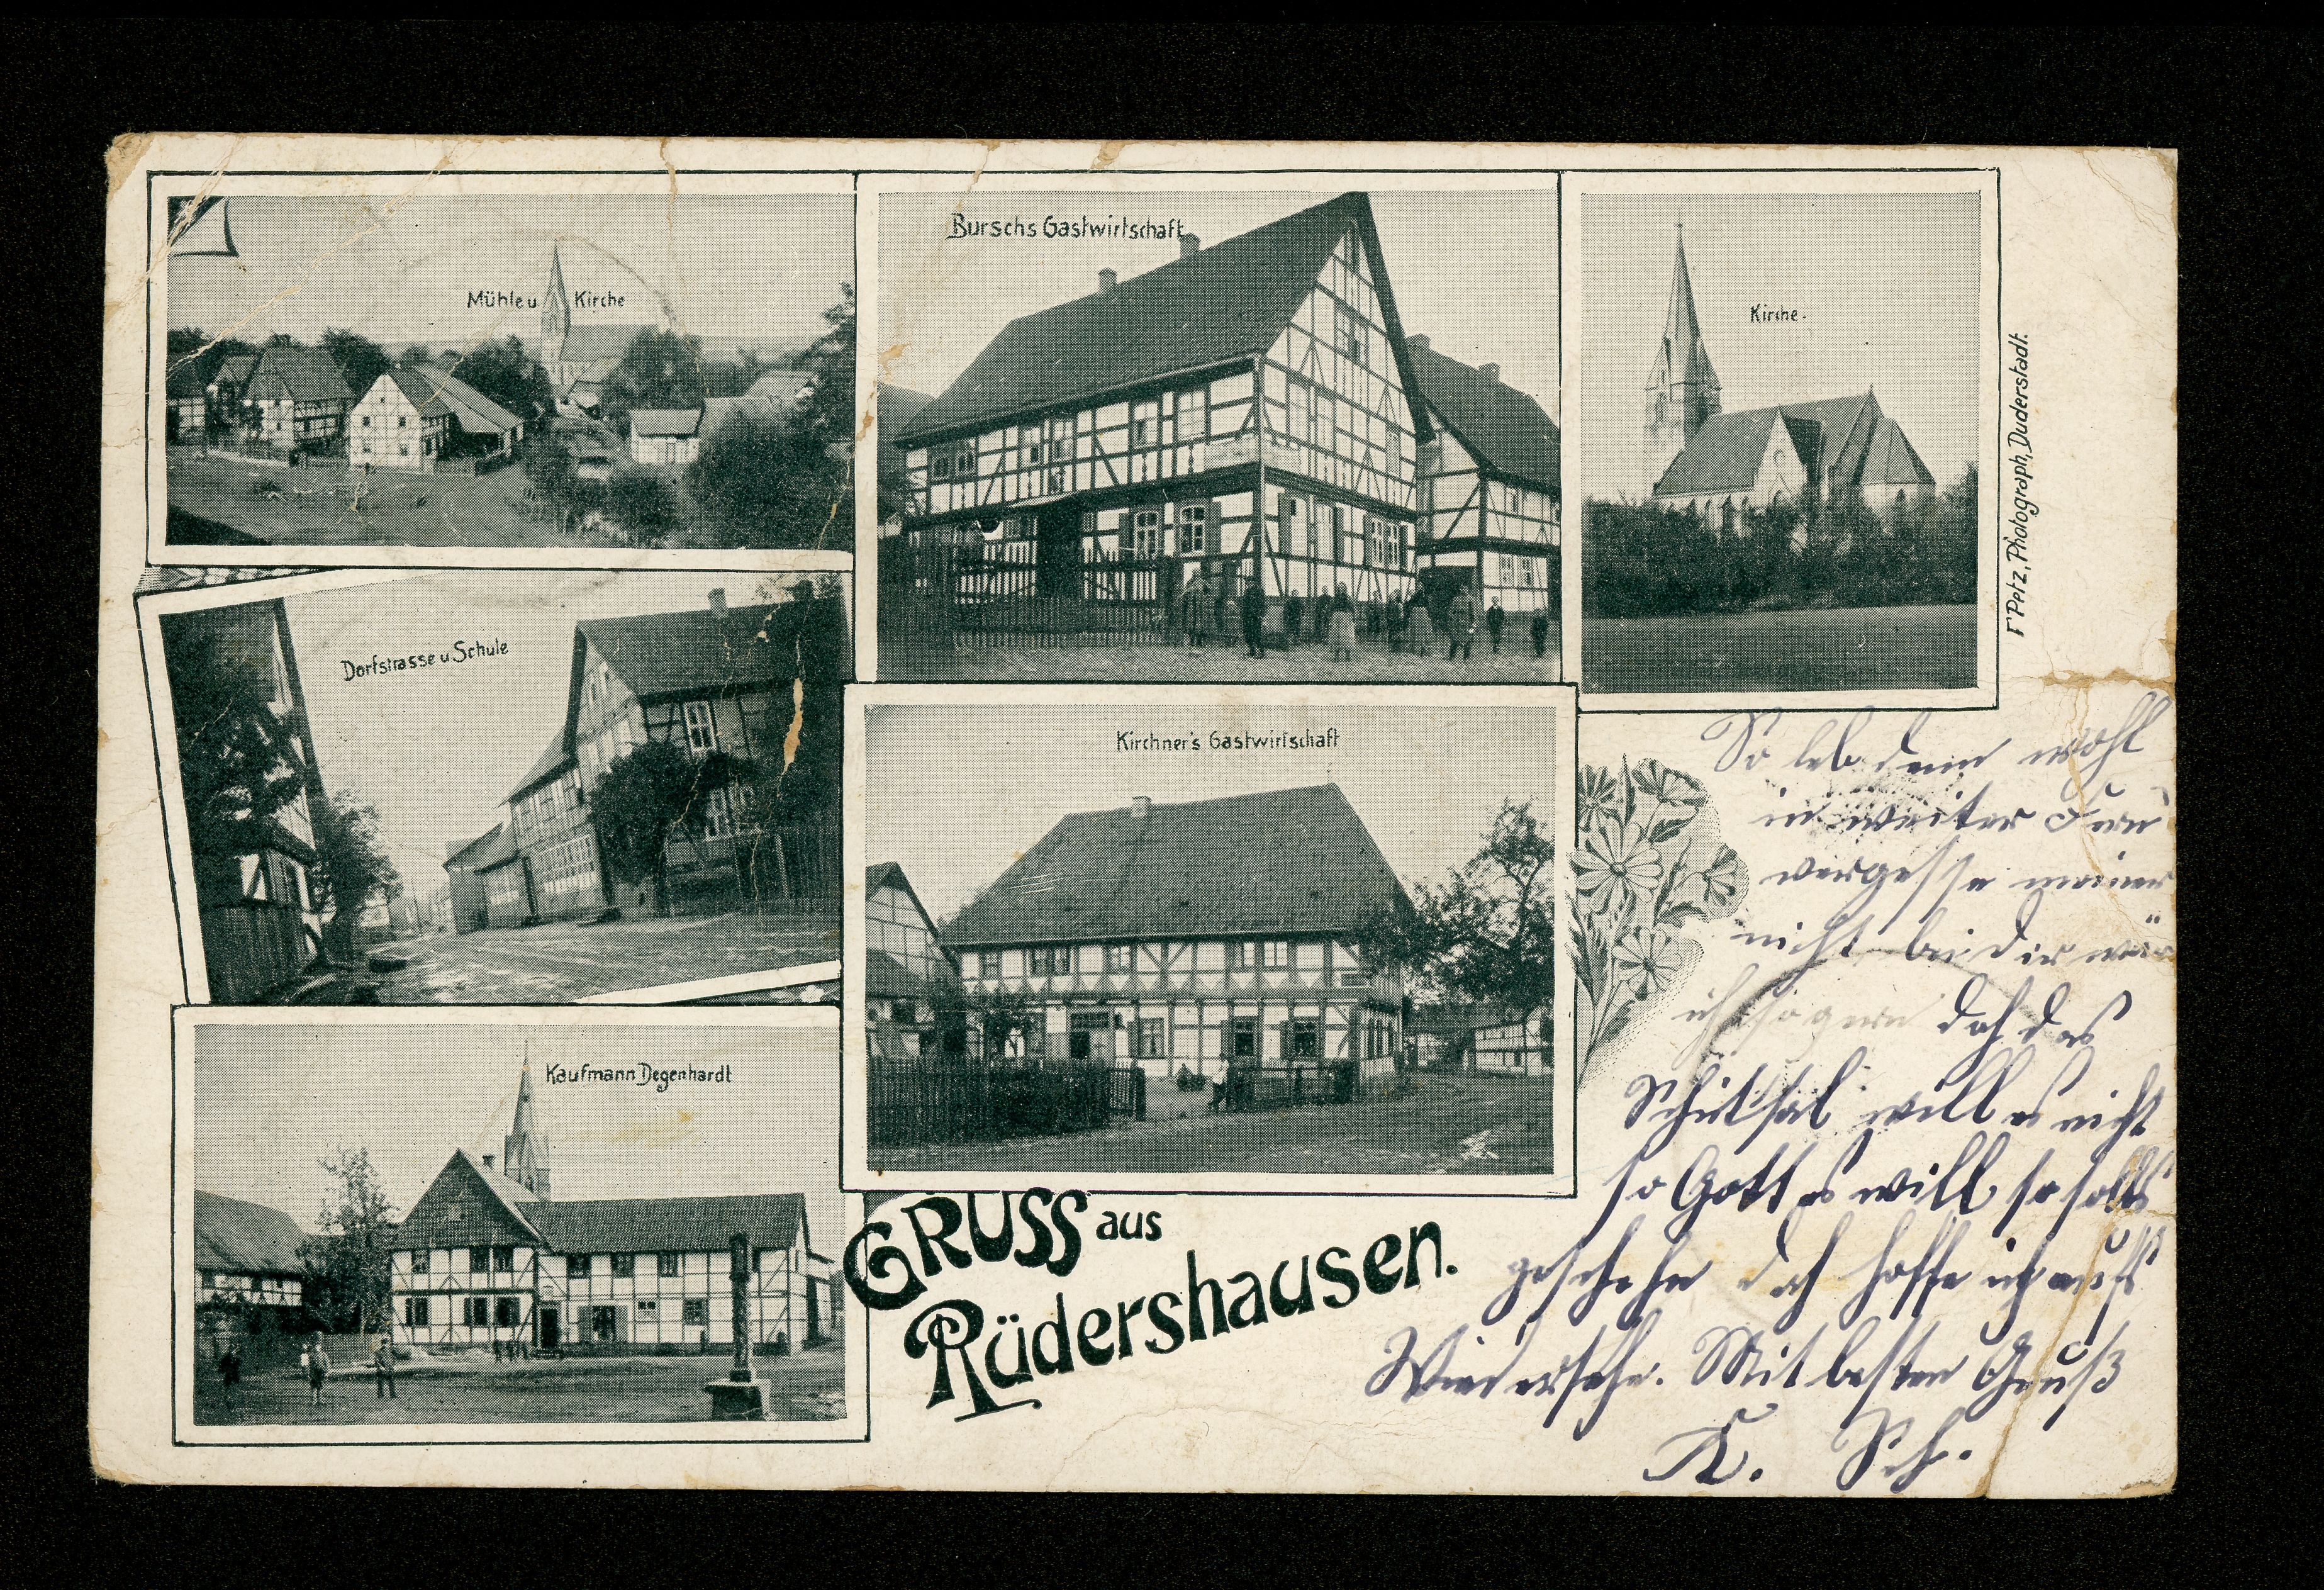 Mühle u. Kirche
Burschs Gastwirtschaft
Kirche.
F. Petz, Photograph, Duderstadt.
Dorfstrasse u Schule
Kirchner's Gastwirtschaft
Kaufmann Degenhardt
GRUSS aus
Rüdershausen.
So leb denn wohl
in weiter Fern
vergesse meiner
nicht bei dir wär
ich so gern doch das
Schiksal will es nicht
so Gott es will so solls
geschehn doch hoffe ich aufs
Wiedersehn. Mit besten Gruß
K. Sch.